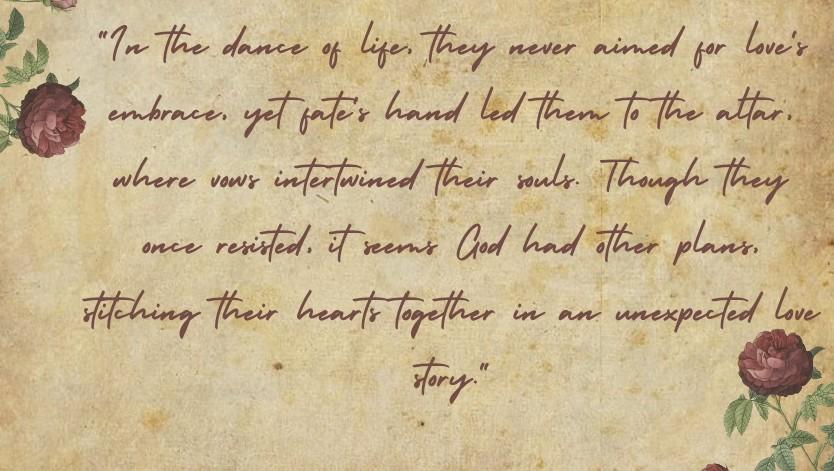 "In the dance of life, they never aimed for love's
embrace, yet fate's hand led them to the altar,
where vows intertwined their souls. Though they
once resisted, it seems God had other plans,
stitching their hearts together in an unexpected love
story."